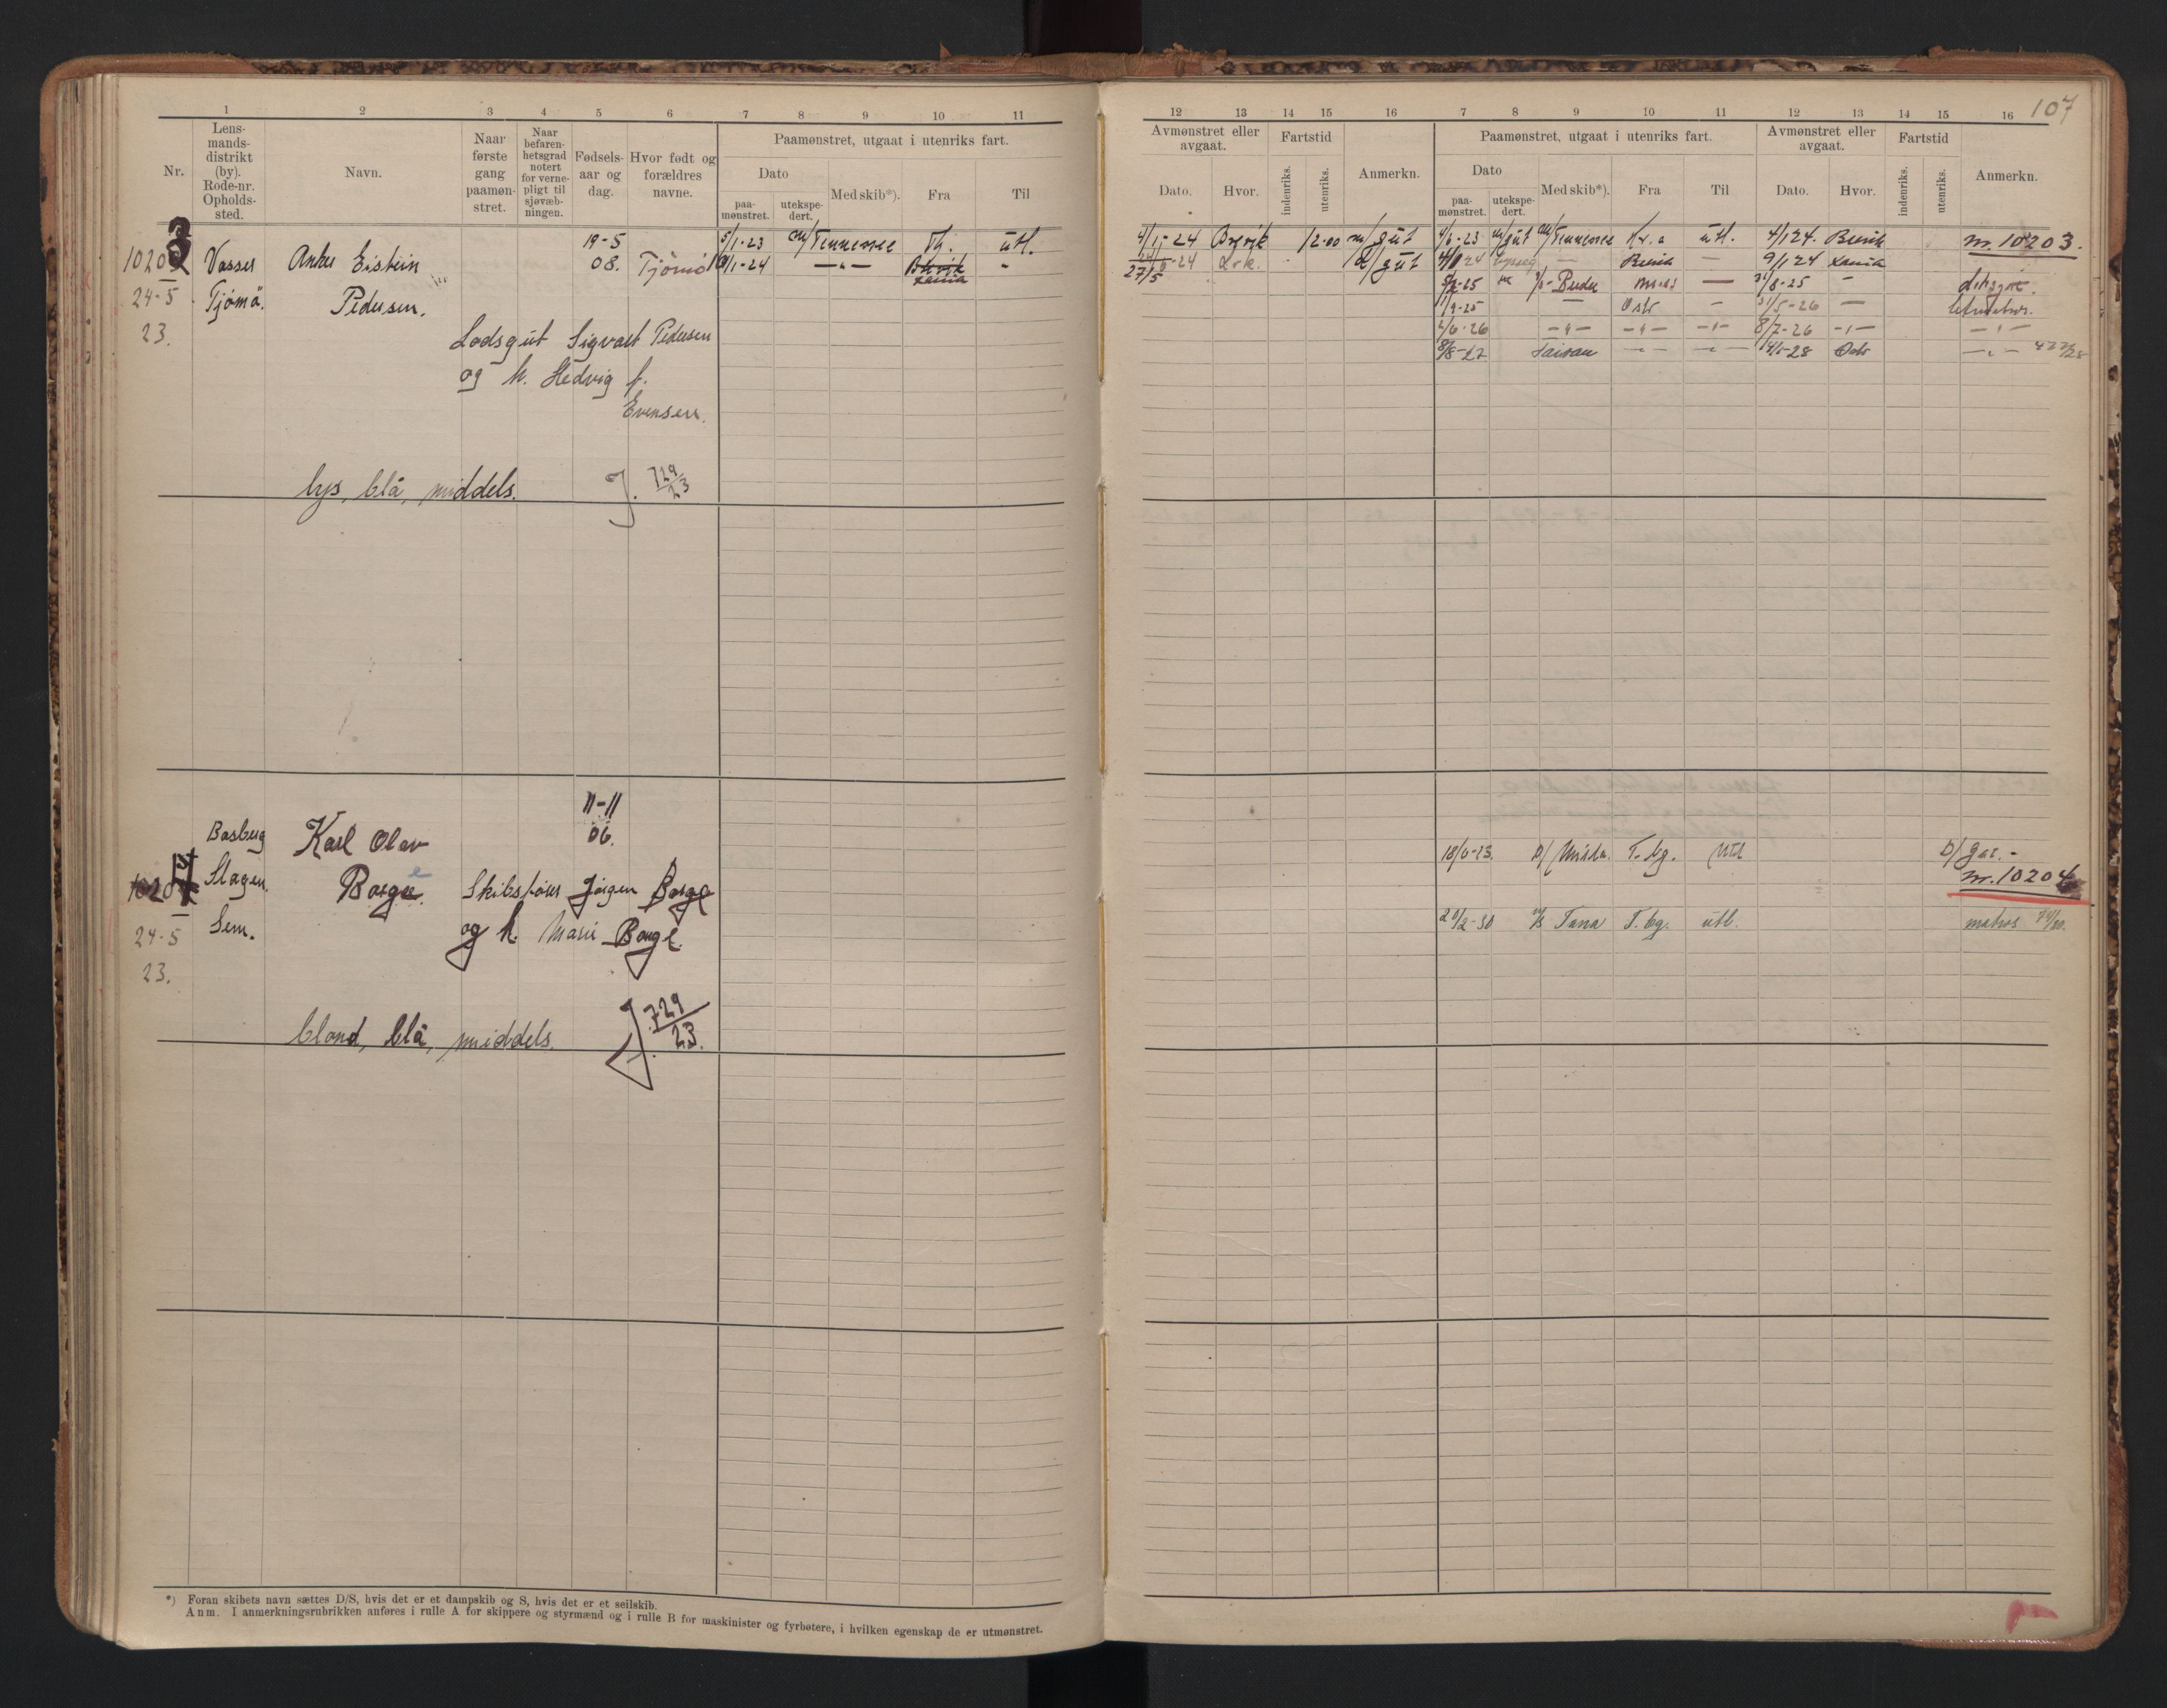 107
1 2 3 4 5 6 7 8 9 10 11
Nr.
Lens-
mands-
distrikt
(by).
Rode-nr.
Opholds-
sted.
Navn.
Naar
første
gang
paamøn-
stret.
Naar
befaren-
hetsgrad
notert
for verne-
pligt til
sjøvæb-
ningen.
Fødsels-
aar og
dag.
Hvor født og
forældres
navne.
Paamønstret, utgaat i utenriks fart.
Dato
paa-
mønstret.
utekspe-
dert.
Med skib*).
Fra
Til
10203
24-5
23.
Vasser
Tjømø.
Anker Eistein
Pedersen.
19-5
08.
Tjømø
5/1-23 M/Tennessee Th. utl.
1-24 —"— Brevik -
Xania
Lodsgut Sigvart Pedersen
og h. Hedvig f.
Evensen.
lys, blå, middels.
J. 729/23
10204
24-5
23.
Basberg
Slagen.
Sem.
Karl Olav
Borge.
11-11
06.
Skibsfører Jørgen Borge
og h. Marie Borge.
blond, blå, middels.
J. 729/23.
*) Foran skibets navn sættes D/S, hvis det er et dampskib og S, hvis det er et seilskib.
Anm. I anmerkningsrubrikken anføres i rulle A for skippere og styrmænd og i rulle B for maskinister og fyrbøtere, i hvilken egenskap de er utmønstret.
12 13 14 15 16 7 8 9 10 11 12 13 14 15 16
Avmønstret eller
avgaat.
Dato.
Hvor.
Fartstid
indenriks.
utenriks.
Anmerkn.
Paamønstret, utgaat i utenriks fart.
Dato
paa-
mønstret.
utekspe-
dert.
Med skib*).
Fra
Til
Avmønstret eller
avgaat.
Dato.
Hvor.
Fartstid
indenriks.
utenriks.
Anmerkn.
4/1-24 Brevik 12-00 m/gut 4/6-23 m/gut M/Tennessee Kr.a utl. 4/1 24. Brevik nr. 10203.
27/5 -24 d/gut Brevik — 9/1 24 Xania
5/2-25 — 31/8-25 -
1/9-25 — Oslo - 31/5-26 — letmatros.
2/6-26 —"— —"— —"— 8/7-26 —"— —"—
8/8-27 Taiwan —"— —"— 14/1-28 Oslo —"—
18/6-23. D/ T.bg. Utl D/ gut.-
nr. 10204
20/2-30 M/S Tana T.bg. utl. matros 74/30.